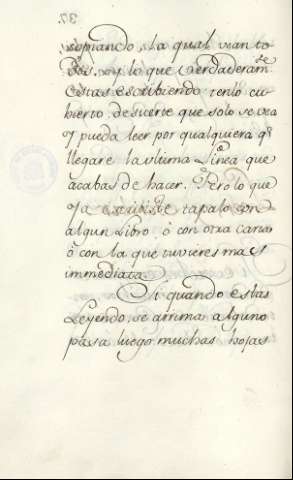 37.
copiando, la qual vean to
dos. y lo que verdaderamte
estas escribiendo tenlo cu-
bierto de suerte que solo se vea
y pueda leer por qualquiera qe
llegare la ultima Linea que
acabas de hacer. Pero lo que
ya escribiste tapalo con
algun Libro ò con otra Carta
ò con la que tuvieres mas
immediata.
Si quando estas
Leyendo, se arrima alguno
pasa luego muchas hojas